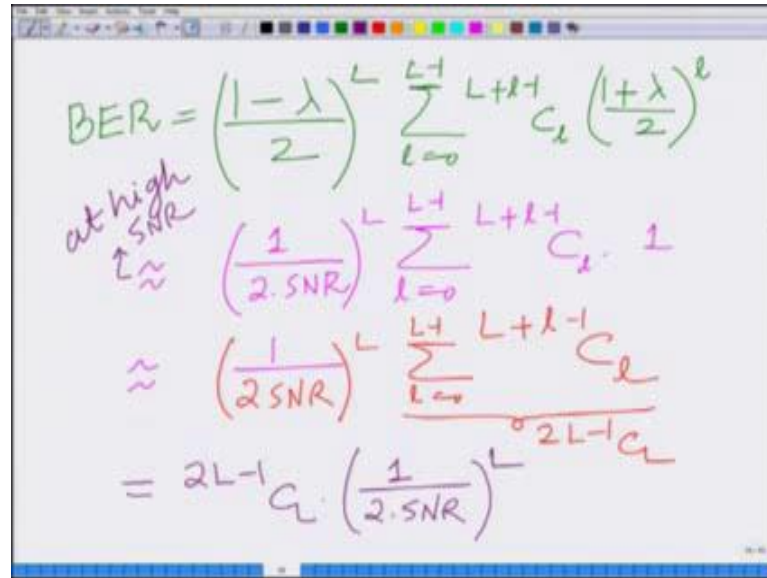 BER = ((1 − λ)/2)^L ∑_{l=0}^{L-1} ^{L+l-1}C_l ((1+λ)/2)^l
at high SNR
≈ (1/(2.SNR))^L ∑_{l=0}^{L-1} ^{L+l-1}C_l . 1
≈ (1/(2 SNR))^L ∑_{l=0}^{L-1} ^{L+l-1}C_l
^{2L-1}C_L
= ^{2L-1}C_L . (1/(2.SNR))^L